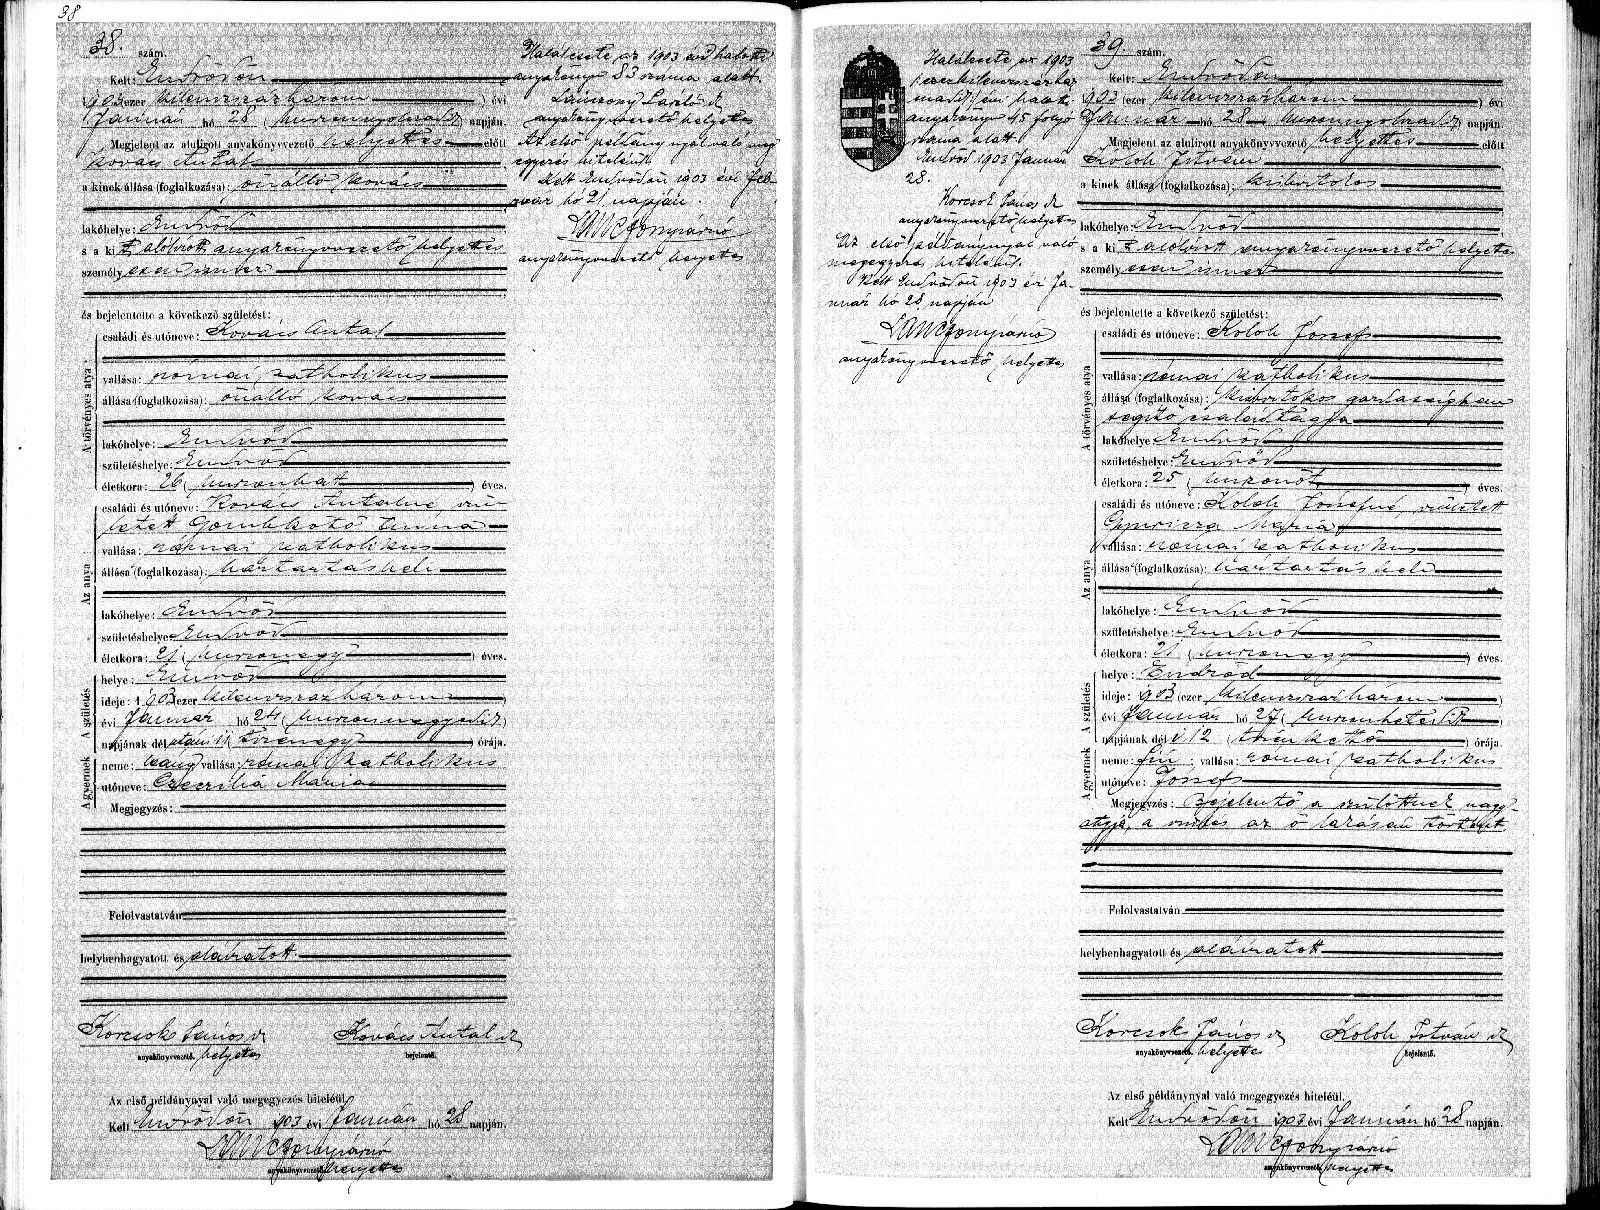 38
38. szám.
Kelt: Endrődön
1903 ezer kilenczszázhárom ) évi
Január hó 28 ( huszonnyolczadik ) napján.
Megjelent az alulirott anyakönyvvezető helyettes előtt
Kovács Antal
a kinek állása (foglalkozása): önálló kovács
lakóhelye: Endrőd
s a kit alólirott anyakönyvvezető helyettes
személyesen ismer
és bejelentette a következő születést:
A törvényes atya
családi és utóneve: Kovács Antal
vallása: római katholikus
állása (foglalkozása): önálló kovács
lakóhelye: Endrőd
születéshelye: Endrőd
életkora: 26 ( huszonhat ) éves.
Az anya
családi és utóneve: Kovács Antalné, szü-
letett Gombkötő Emma
vallása: római katholikus
állása (foglalkozása): háztartásbeli
lakóhelye: Endrőd
születéshelye: Endrőd
életkora: 21 ( huszonegy ) éves.
A születés
helye: Endrőd
ideje: 1903 ezer kilenczszázhárom
évi Január hó 24 ( huszonnegyedik )
napjának délutáni 11 ( tizenegy ) órája.
A gyermek
neme: leány vallása: római katholikus
utóneve: Czeczilia Mária
Megjegyzés:
Felolvastatván
helybenhagyatott és aláiratott.
Korcsok János sk Kovács Antal sk
anyakönyvvezető helyettes bejelentő.
Az első példánynyal való megegyezés hiteléül.
Kelt Endrődön 1903 évi Január hó 28 napján.
anyakönyvvezető helyettes
Halálesete az 1903 évi halotti
anyakönyv 83 száma alatt.
anyakönyvvezető helyettes
Az első példánynyal való meg-
egyezés hiteléül.
Kelt Endrődön 1903 évi Feb-
ruár hó 21 napján.
anyakönyvvezető helyettes
Halálesete az 1903
(ezerkilenczszázhár-
madik) évi halotti
anyakönyv 45 folyó
száma alatt.
Endrőd 1903 Január
28.
Korcsok János sk
anyakönyvvezető helyettes
Az első példánynyal való
megegyezés hiteléül.
Kelt Endrődön 1903 évi Ja-
nuár hó 28 napján
anyakönyvvezető helyettes
39. szám.
Kelt: Endrődön
1903 (ezer kilenczszázhárom ) évi
Január hó 28 ( huszonnyolczadik ) napján.
Megjelent az alulirott anyakönyvvezető helyettes előtt
Koloh István
a kinek állása (foglalkozása): kisbirtokos
lakóhelye: Endrőd
s a kit alólirott anyakönyvvezető helyettes
személyesen ismer
és bejelentette a következő születést:
A törvényes atya
családi és utóneve: Koloh József
vallása: római katholikus
állása (foglalkozása): kisbirtokos gazdaságban
segitő családtagja
lakóhelye: Endrőd
születéshelye: Endrőd
életkora: 25 ( huszonöt ) éves.
Az anya
családi és utóneve: Koloh Józsefné, született
Gyuricza Mária
vallása: római katholikus
állása (foglalkozása): háztartásbeli
lakóhelye: Endrőd
születéshelye: Endrőd
életkora: 21 ( huszonegy ) éves.
A születés
helye: Endrőd
ideje: 1903 (ezer kilenczszázhárom )
évi Január hó 27 ( huszonhetedik )
napjának déli 12 ( tizenkettő ) órája.
A gyermek
neme: fiú ; vallása: római katholikus
utóneve: József
Megjegyzés: Bejelentő a szülöttnek nagy-
atyja, a szülés az ő házásan történt.
Felolvastatván
helybenhagyatott és aláiratott
Korcsok János sk Koloh István sk
anyakönyvvezető helyettes bejelentő.
Az első példánynyal való megegyezés hiteléül.
Kelt Endrődön 1903 évi Január hó 28 napján.
anyakönyvvezető helyettes